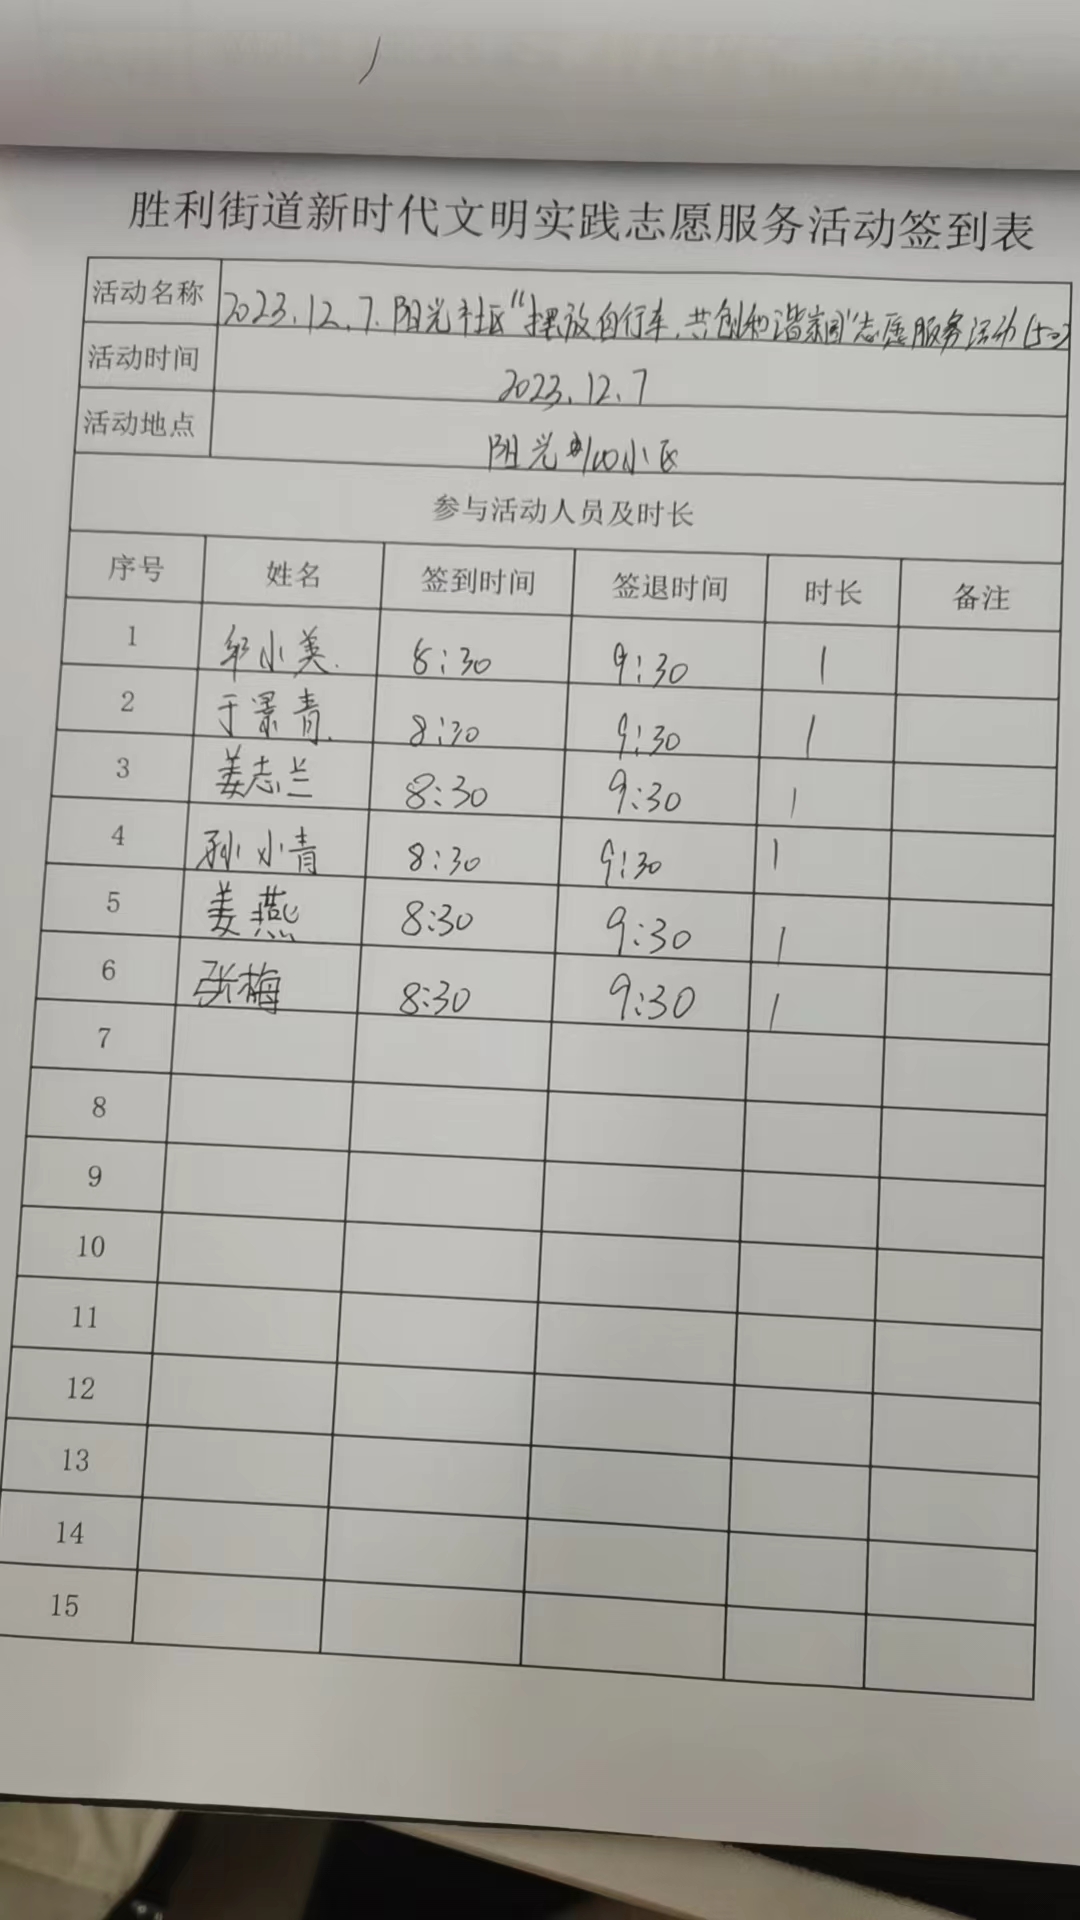 胜利街道新时代文明实践志愿服务活动签到表
活动名称 2023.12.7.阳光社区“摆放自行车,共创和谐家园”志愿服务活动(50)
活动时间 2023.12.7
活动地点 阳光100小区
参与活动人员及时长
序号 姓名 签到时间 签退时间 时长 备注
1 小美. 8:30 9:30 1
2 于景青. 8:30 9:30 1
3 姜志兰 8:30 9:30 1
4 孙小青 8:30 9:30 1
5 姜燕 8:30 9:30 1
6 张梅 8:30 9:30 1
7
8
9
10
11
12
13
14
15